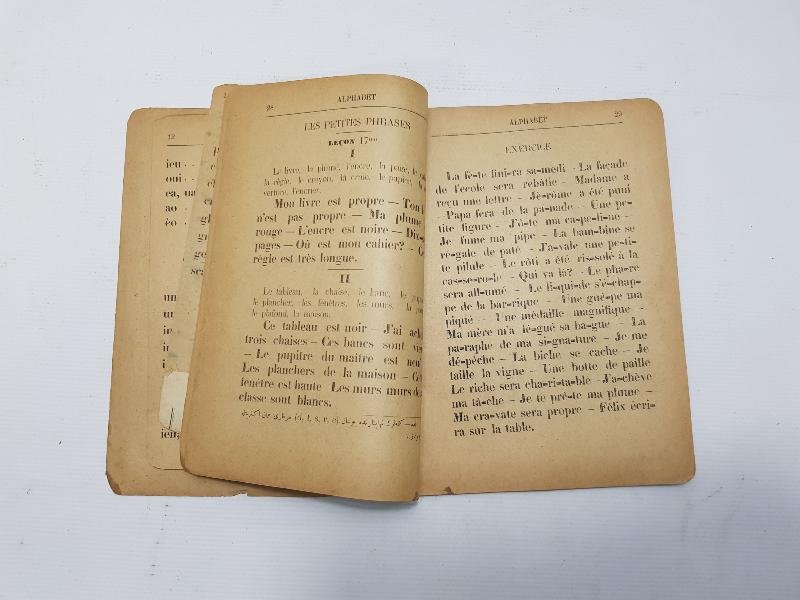 12
ieu
oui
ea, ua
ao
éo
28 ALPHABET
LES PETITES PHRASES
LEÇON 17me
I
Le livre, la plume, l'encre, la page, le
la règle, le crayon, la craie, le papier,
verture, l'encrier.
Mon livre est propre — Ton
n'est pas propre — Ma plume
rouge — L'encre est noire — Dix
pages — Où est mon cahier? —
règle est très longue.
II
Le tableau, la chaise, le banc, le
le plancher, les fenêtres, les murs, la
le plafond, la maison.
Ce tableau est noir — J'ai
trois chaises — Ces bancs sont
— Le pupitre du maître est
Les planchers de la maison —
fenêtre est haute Les murs murs de
classe sont blancs.
(d, t, s, r, e)
ALPHABET 29
EXERCICE
La fê-te fini-ra sa-medi - La façade
de l'école sera rebâtie - Madame a
reçu une lettre - Jé-rôme a été puni
- Papa fera de la pa-nade - Une pe-
tite figure - J'ô-te ma ca-pe-li-ne -
Je fume ma pipe - La bam-bine se
ré-gale de paté - J'a-vale une pe-ti-
te pilule - Le rôti a été ris-solé à la
cas-se-ro-le - Qui va là? - Le pha-re
sera all-umé - Le li-qui-de s'é-chap-
pe de la bar-rique - Une gué-pe ma
piqué - Une médaille magnifique -
Ma mère m'a lé-gué sa ba-gue - La
pa-raphe de ma si-gna-ture - Je me
dé-pêche - La biche se cache - Je
taille la vigne - Une botte de paille
Le riche sera cha-ri-ta-ble - J'a-chève
ma tâ-che - Je te prê-te ma plume -
Ma cra-vate sera propre - Félix écri-
ra sur la table.